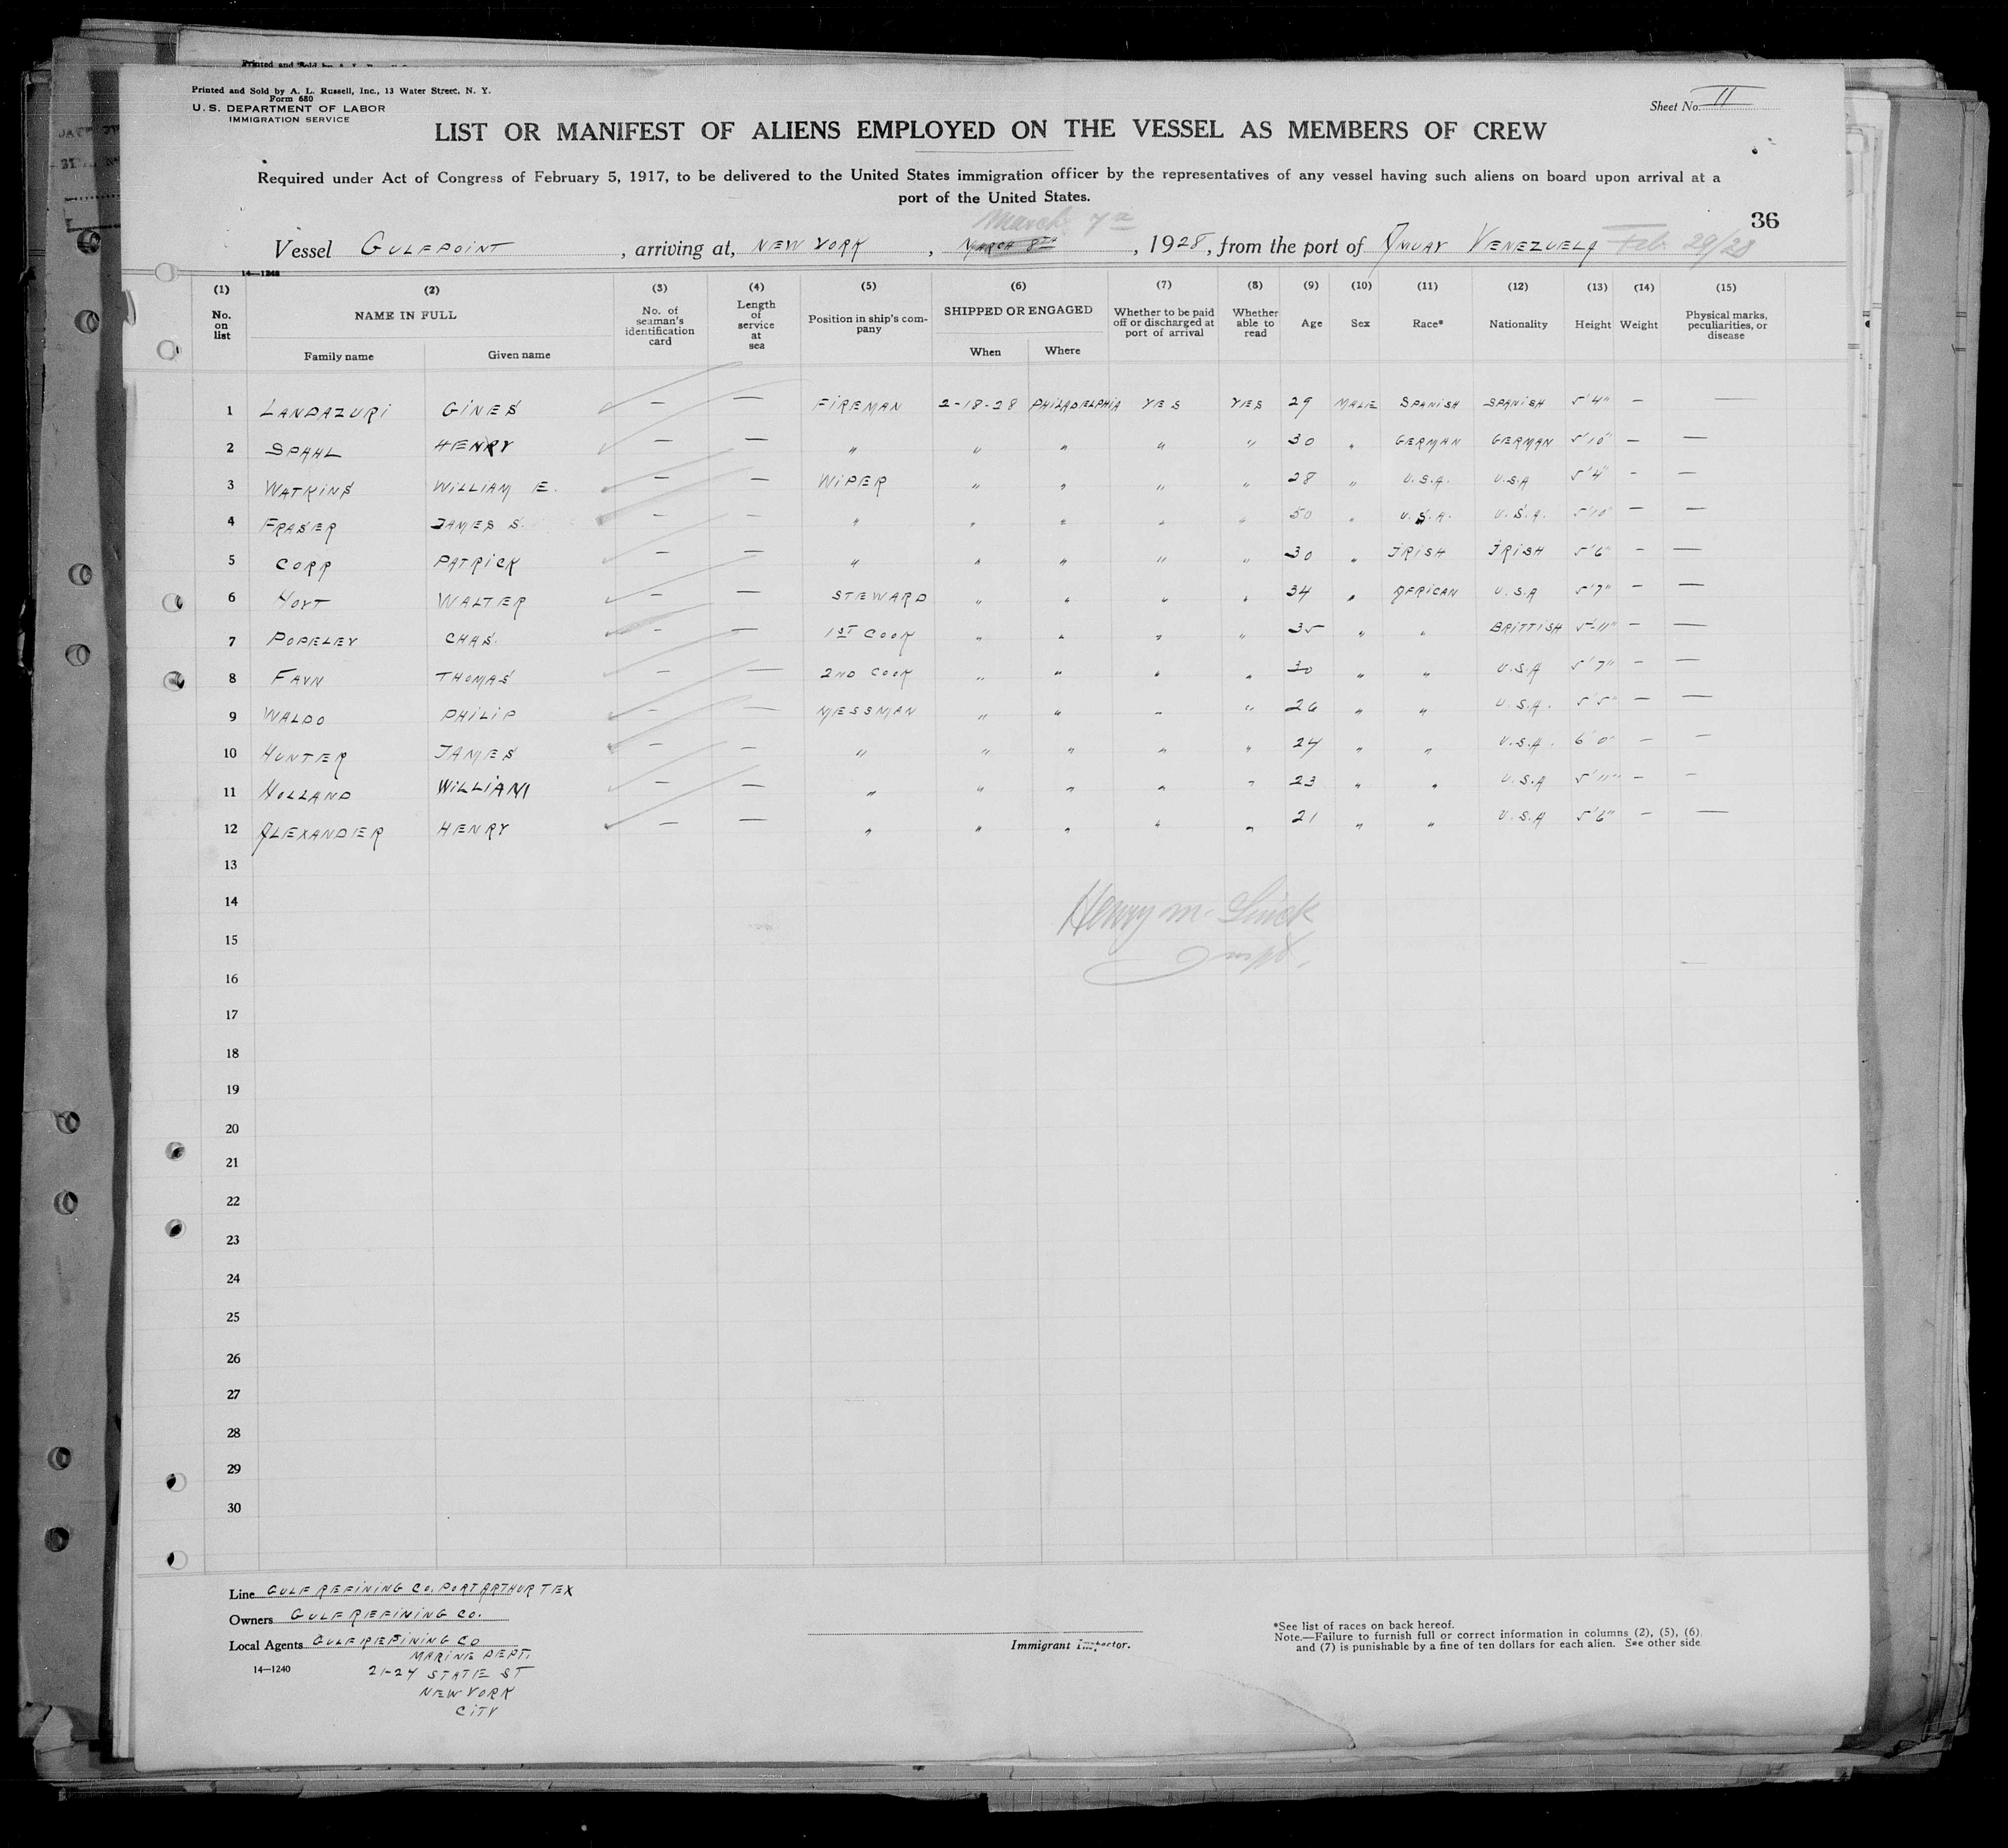 Printed and Sold by A. L. Russell, Inc., 13 Water Street, N. Y.
Form 680
U. S. DEPARTMENT OF LABOR
IMMIGRATION SERVICE
Sheet No. II
LIST OR MANIFEST OF ALIENS EMPLOYED ON THE VESSEL AS MEMBERS OF CREW
Required under Act of Congress of February 5, 1917, to be delivered to the United States immigration officer by the representatives of any vessel having such aliens on board upon arrival at a
port of the United States.
36
March 7th
Vessel GULFPOINT, arriving at, NEW YORK, MARCH 8TH, 1928, from the port of AMUAY VENEZUELA Feb. 29/28
14—1240
(1) (2) (3) (4) (5) (6) (7) (8) (9) (10) (11) (12) (13) (14) (15)
No. on list NAME IN FULL No. of seaman's identification card Length of service at sea Position in ship's company SHIPPED OR ENGAGED Whether to be paid off or discharged at port of arrival Whether able to read Age Sex Race* Nationality Height Weight Physical marks, peculiarities, or disease
Family name Given name When Where
1 LANDAZURI GINES — — FIREMAN 2-18-28 PHILADELPHIA YES YES 29 MALE SPANISH SPANISH 5'4" — —
2 SPAHL HENRY — — " " " " " 30 " GERMAN GERMAN 5'10" — —
3 WATKINS WILLIAM E. — — WIPER " " " " 28 " U.S.A. U.S.A 5'4" — —
4 FRASER JAMES S. — — " " " " " 50 " U.S.A. U.S.A. 5'10" — —
5 CORR PATRICK — — " " " " " 30 " IRISH IRISH 5'6" — —
6 HOYT WALTER — — STEWARD " " " " 34 " AFRICAN U.S.A 5'7" — —
7 POPELEY CHAS. — — 1ST COOK " " " " 35 " " BRITTISH 5'11" — —
8 FAVN THOMAS — — 2ND COOK " " " " 30 " " U.S.A 5'7" — —
9 WALDO PHILIP — — MESSMAN " " " " 26 " " U.S.A. 5'5" — —
10 HUNTER JAMES — — " " " " " 24 " " U.S.A. 6'0" — —
11 HOLLAND WILLIAM — — " " " " " 23 " " U.S.A 5'11" — —
12 ALEXANDER HENRY — — " " " " " 21 " " U.S.A 5'6" — —
13
14
Henry M.
15
16
17
18
19
20
21
22
23
24
25
26
27
28
29
30
Line GULF REFINING CO. PORT ARTHUR TEX
Owners GULF REFINING CO.
Local Agents GULF REFINING CO
MARINE DEPT.
14—1240 21-24 STATE ST
NEW YORK
CITY
Immigrant Inspector.
*See list of races on back hereof.
Note.—Failure to furnish full or correct information in columns (2), (5), (6),
and (7) is punishable by a fine of ten dollars for each alien. See other side